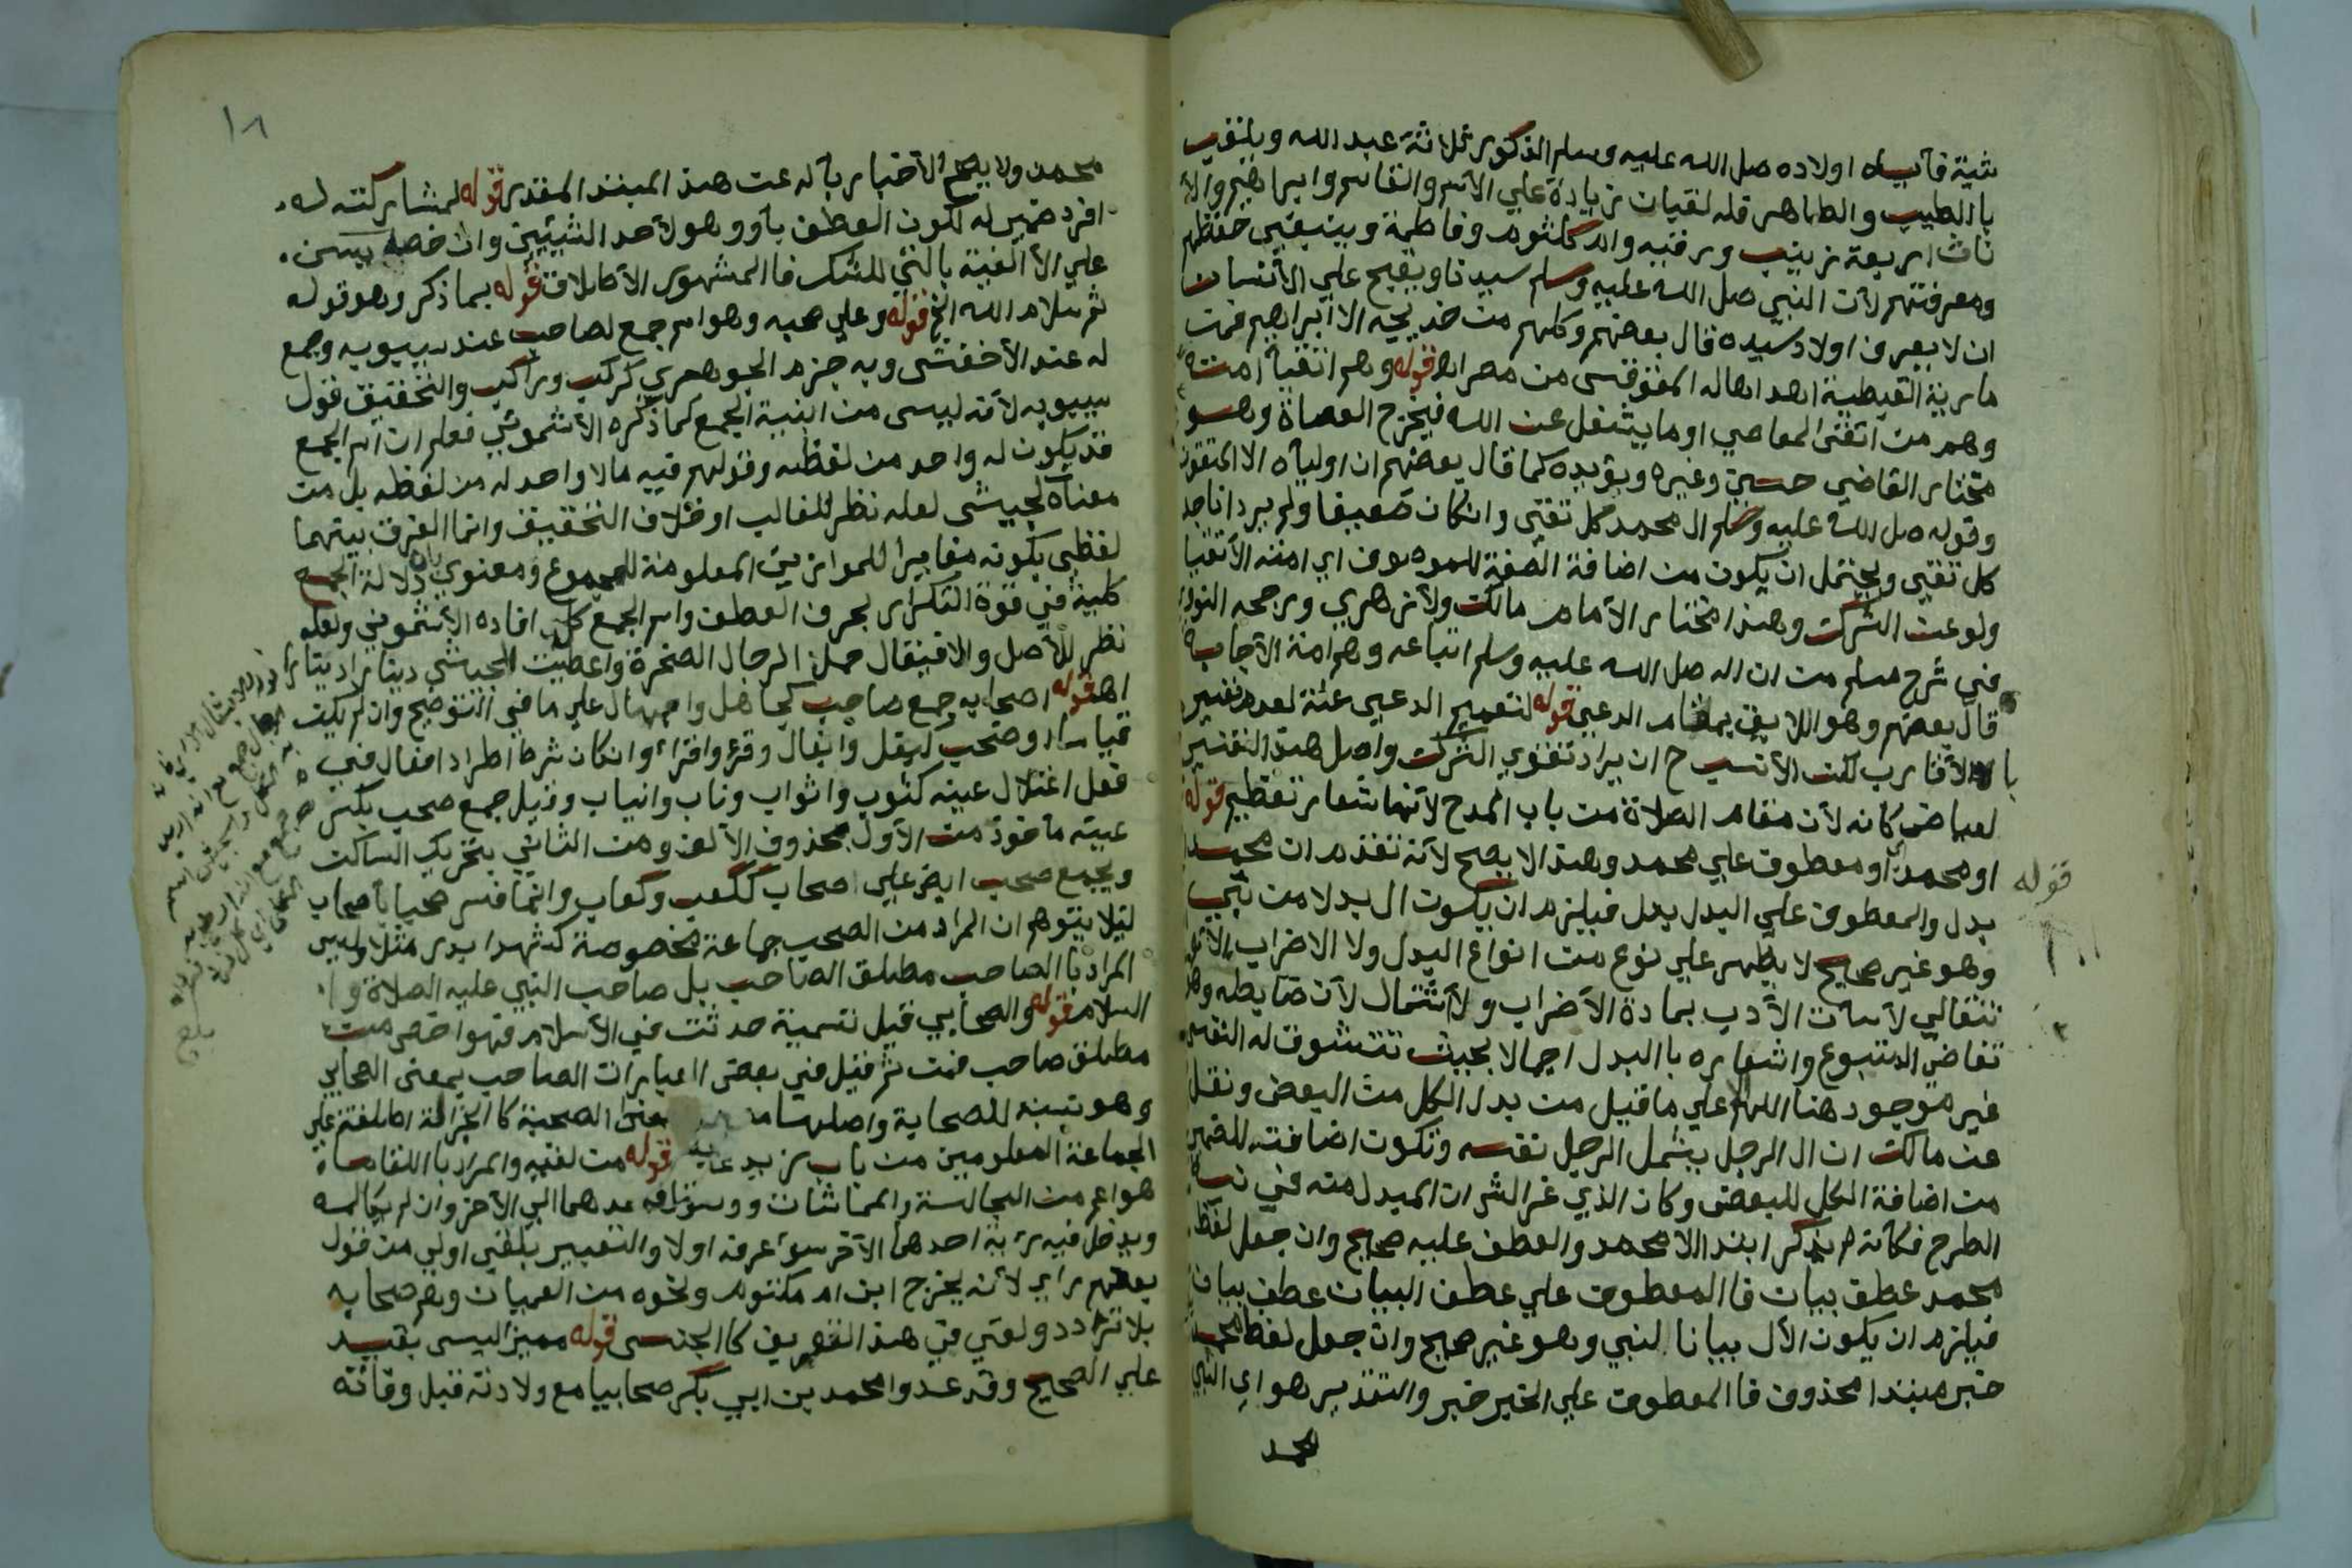 ثنية فآيباه اولاده صل الله عليه وسلم الذكور ثلاثة عبد الله ويلقب
با الطيب والطاهر فله لقبان زيادة علي الاسم والقاسم وابراهيم والا
ناث اربعة زينب ورقيه وام كلثوم وفاطمة وينبغي حفظهم
ومعرفتهم لان النبي صل الله عليه وسلم سيدنا ويقبح علي الانسان
ان لا يعرف اولاد سيده قال بعضهم وكلهم من خديجه الا ابراهيم فمن
مارية القبطية اهداها له المقوقس من مصر اه قوله وهم اتقيا امته
وهم من اتقى المعاصي او ما يشغل عن الله فيخرج العصاة وهو
مختار القاضي حسين وغيره ويؤيده كما قال بعضهم ان اوليآه الا المتقون
وقوله صل الله عليه وسلم ال محمد كل تقي وان كان ضعيفا ولم يرد انا جد
كل تقي ويحتمل ان يكون من اضافة الصفة للموصوف اي امته الاتقيا
ولو عن الشرك وهذا مختار الامام مالك ولازهري ورجحه النووي
في شرح مسلم من ان اله صل الله عليه وسلم اتباعه وهم امة الاجابة
قال بعضهم وهو اللايق بمقام الدعي قوله لتعميم الدعي علة لعدم تفسيره
با الاقارب لكن الانسب ح ان يراد تقوي الشرك واصل هذا التفسير
لعياض كانه لان مقام الصلاة من باب المدح لانها شعار تعظيم قوله
او محمد او معطوف علي محمد وهذا لا يصح لانه تقدم ان محمد
بدل والمعطوف علي البدل بدل فيلزم ان يكون ال بدلا من نبي
وهو غير صحيح لا يظهر علي نوع من انواع البدل ولا الاضراب الا
تتقالي لاسآت الادب بمادة الاضراب ولا شتمال لان ضابطه وهو
تقاضي المتبوع واشعاره با البدل اجمالا بحيث تتشوق له النفس
غير موجود هنا اللهم الا علي ما قيل من بدل الكل من البعض ونقل
عن مالك ان ال الرجل يشمل الرجل نفسه وتكون اضافته للضمير
من اضافة الكل للبعض وكان الذي غر الشر ان المبدل منه في نية
الطرح فكآنه لم يذكر ابتدا الا محمد والعطف عليه صحيح وان جعل لفظ
محمد عطف بيان فا المعطوف علي عطف البيان عطف بيان
فيلزم ان يكون الال بيانا لنبي وهو غير صحيح وان جعل لفظ محمد
خبر مبتدا محذوف فا المعطوف علي الخبر خبر والتقدير هو اي النبي
محمد
قوله
١٨
محمد ولا يصح الاخبار بآله عن هذا المبتدا المقدر قوله لمشاركته له
افرد ضمير له لكون العطف بآو وهو لاحد الشيئين وان خصه يسن
علي الالفية بالتي للشك فا المشهور الاطلاق قوله بما ذكر وهو قوله
ثم سلام الله الخ قوله وعلي صحبه وهو اسم جمع لصاحب عند سيبويه وجمع
له عند الاخفش وبه جزم الجوهري كركب وراكب والتحقيق قول
سيبويه لانه ليس من ابنية الجمع كما ذكره الاشموني فعلم ان اسم الجمع
قد يكون له واحد من لفظه وقولهم فيه مالا واحد له من لفظه بل من
معناه كجيش لعله نظر للغالب او خلاف التحقيق وانما الفرق بينهما
لفظي بكونه مغايرا للموازين المعلومة للجموع ومعنوي بان دلالة الجمع
كلية في قوة التكرار بحرف العطف واسم الجمع كل افاده الاشموني ولعله
نظر للاصل والا فيقال حمل الرجال الصخرة واعطيت الجيش دينارا دينارا
اه قوله اصحابه جمع صاحب كجاهل واجهال علي ما في التوضيح وان لم يكن
قياسا او صحب كبغل وابغال وقرؤ واقراء وان كان شرط اطراد افعال في
فعل اعتلال عينه كثوب واثواب وناب وانياب وقيل جمع صحب بكسر
عينه ماخوذ من الاول بحذوف الالف ومن الثاني بتحريك الساكن
ويجمع صحب ايض علي اصحاب ككعب وكعاب وانما فسر صحبا باصحاب
ليلا يتوهم ان المراد من الصحب جماعة مخصوصة كشهدا بدر مثلا وليس
المراد با الصاحب مطلق الصاحب بل صاحب النبي عليه الصلاة و
السلام قوله والصحابي قيل تسمية حدثت في الاسلام فهو اخص من
مطلق صاحب فمن ثم قيل في بعض العبارات الصاحب بمعني الصحابي
وهو نسبة للصحابة واصلها معني الصحبة كا الجزالة اطلقت علي
الجماعة المعلومين من باب زيد قوله من لقيه والمراد با اللقا
هو اعم من المجالسة والمماشات ووصول احدهما الي الاخر وان لم يكالمه
ويدخل فيه رؤية احدهما الآخر سوآ عرفه اولا والتعبير بلقي اولي من قول
بعضهم راي لانه يخرج ابن ام مكتوم ونحوه من العميان وهم صحابه
بلا تردد ولقي في هذا التعريف كا الجنس قوله مميز اليس بقيد
علي الصحيح وقد عدوا محمد بن ابي بكر صحابيا مع ولادته قبل وفاته